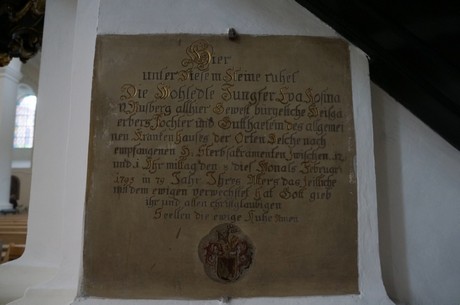 Hier
unter diesem Steine ruhet
Die Wohledle Jungfer Eva Rosina
allhier Gewest burgerliche Weisga
erbers Tochter und Gutthaeterin des allgemei
nen Krankenhauses der Orten Welche nach
empfangenen H. Sterbsakramenten Zwischen 12
und 1 Uhr mittag den 5 dies Monats Februar
in 79 Jahr Ihres Alters das zeitliche
mit dem ewigen verwechslet hat Gott gieb
ihr und allen christglaubigen
Seellen die ewige Ruhe Amen